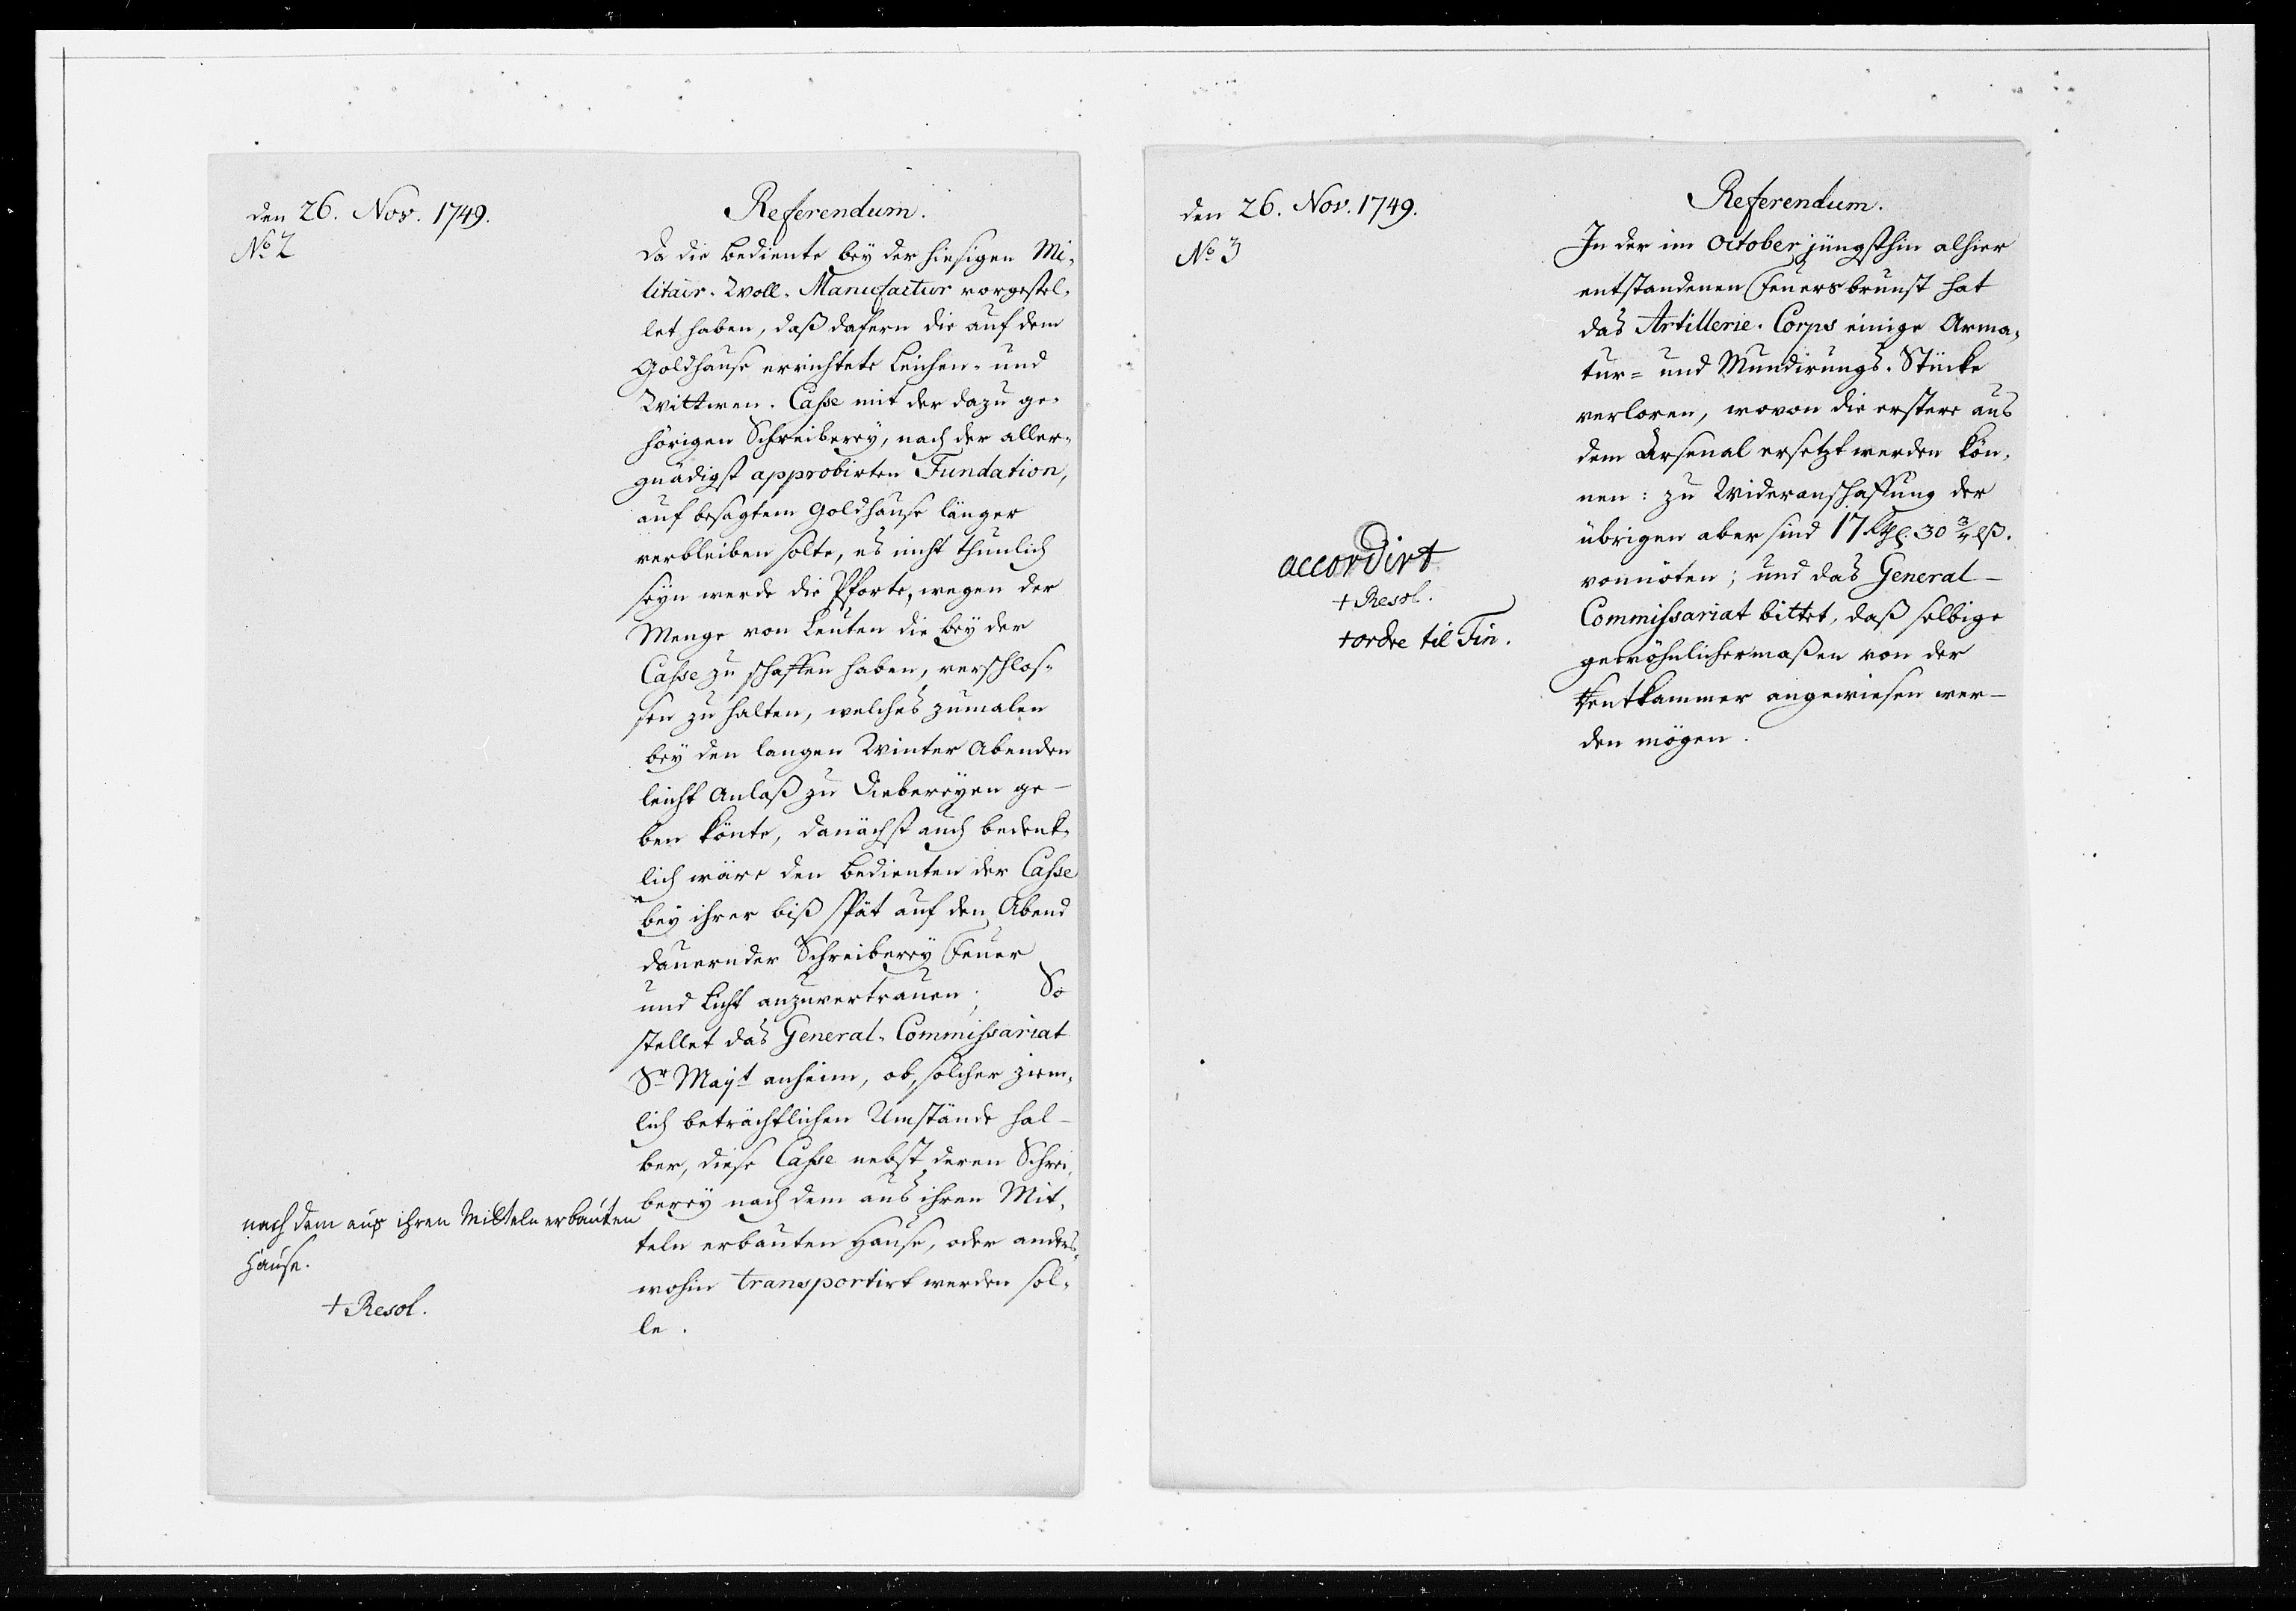 den 26. Nov. 1749.
No 2
Referendum.
Da die Bediente bey der hiesigen Mi-
litair-Woll-Manufactur vorgestel-
let haben, daß dafern die auf dem
Goldhause errichtete Leichen- und
Wittwen-Casse mit der dazu ge-
hörigen Schreiberey, nach der aller-
gnädigst approbirten Fundation,
auf besagtem Goldhause länger
verbleiben solte, es nicht thunlich
seyn werde die Pforte, wegen der
Menge von Leuten die bey der
Casse zu schaffen haben, verschlos-
sen zu halten, welches zumalen
bey den langen Winter Abenden
leicht Anlaß zu Diebereyen ge-
ben könte, danächst auch bedenk-
lich wäre den Bedienten der Casse
bey ihrer biß spät auf den Abend
dauernder Schreiberey Feuer
und Licht anzuvertrauen; So
stellet das General-Commissariat
Sr Mayt anheim, ob, solcher ziem-
lich beträchtlichen Umstände hal-
ber, diese Casse nebst deren Schrei-
berey nach dem aus ihren Mit-
teln erbauten Hause, oder anders-
wohin transportirt werden sol-
le.
nach dem aus ihren Mitteln erbauten
Hause.
+ Resol.
den 26. Nov. 1749.
No 3
Referendum.
In der im October jüngsthin alhier
entstandenen Feuersbrunst hat
das Artillerie-Corps einige Arma-
tur- und Mundirungs-Stücke
verloren, wovon die erstere aus
dem Arsenal ersetzt werden kön-
nen: zu Wideranschaffung der
übrigen aber sind 17 Rthl. 30 3/4 lß.
vonnöten; und das General-
Commissariat bittet, daß selbige
gewöhnlichermaßen von der
Rentkammer angewiesen wer-
den mögen.
accordirt
+ Resol.
+ ordre til Fin.